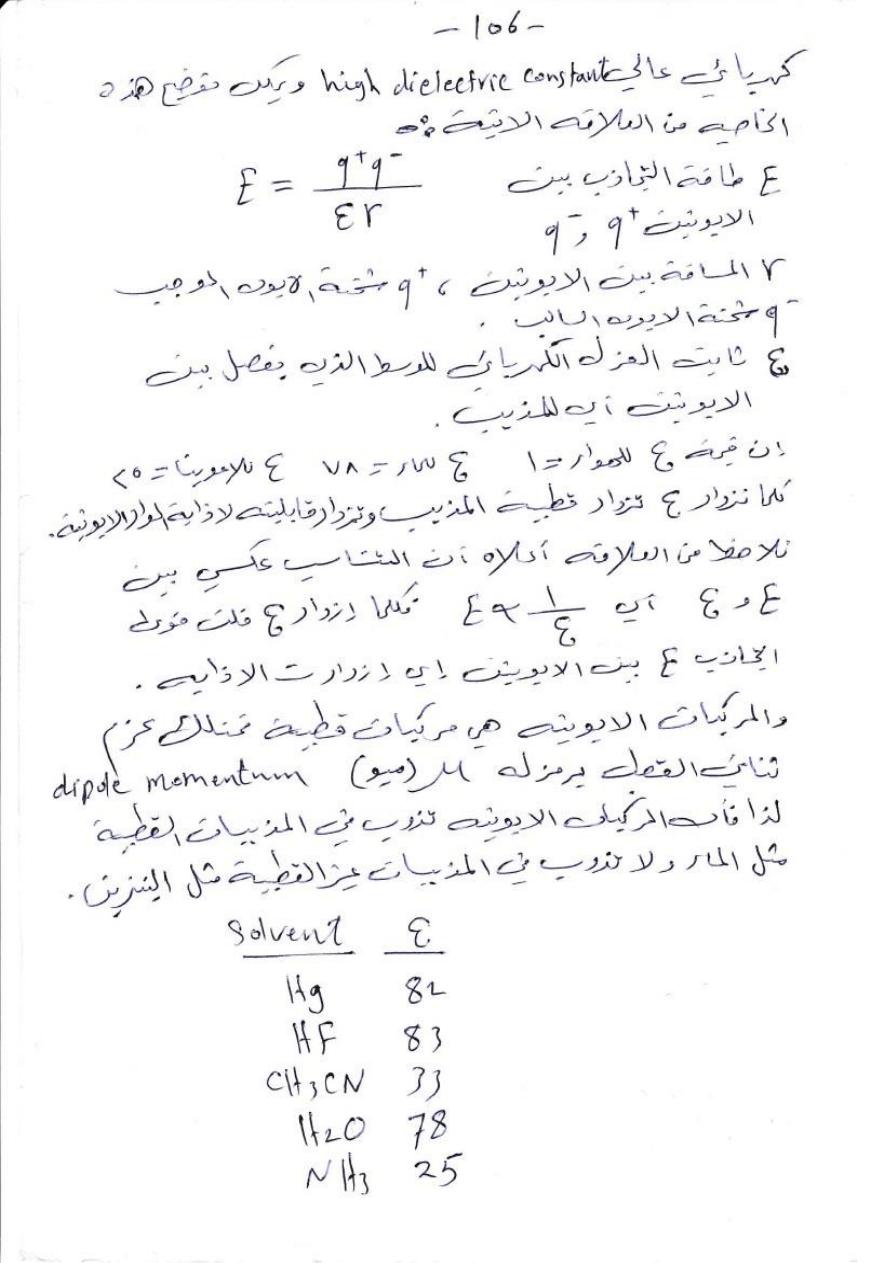 - 106 -
كهربائي عالي high dielectric constant ويمكن توضيح هذه
الخاصيه من العلاقه الاتية :-
E طاقة التجاذب بين E = q⁺q⁻ / εr
الايونين q⁺ و q⁻
r المسافة بين الايونين ، q⁺ شحنة الايون الموجب
q⁻ شحنة الايون السالب .
ε ثابت العزل الكهربائي للوسط الذي يفصل بين
الايونين أي للمذيب .
إن قيمة ε للهواء = ١ ε للماء = ٧٨ ε للامونيا = ٢٥
كلما تزداد ε تزداد قطبية المذيب وتزداد قابليته لاذابة المواد الايونية.
نلاحظ من العلاقه أعلاه أن التناسب عكسي بين
E و ε أي E α 1/ε فكلما إزداد ε قلت قوى
التجاذب E بين الايونين إي إزدادت الاذابه .
والمركبات الايونيه هي مركبات قطبية تمتلك عزم
ثنائي القطب يرمز له μ (ميو) dipole momentum
لذا فأن المركبات الايونيه تذوب في المذيبات القطبية
مثل الماء ولا تذوب في المذيبات غير القطبية مثل البنزين .
Solvent ε
Hg 82
HF 83
CH3CN 33
H2O 78
NH3 25